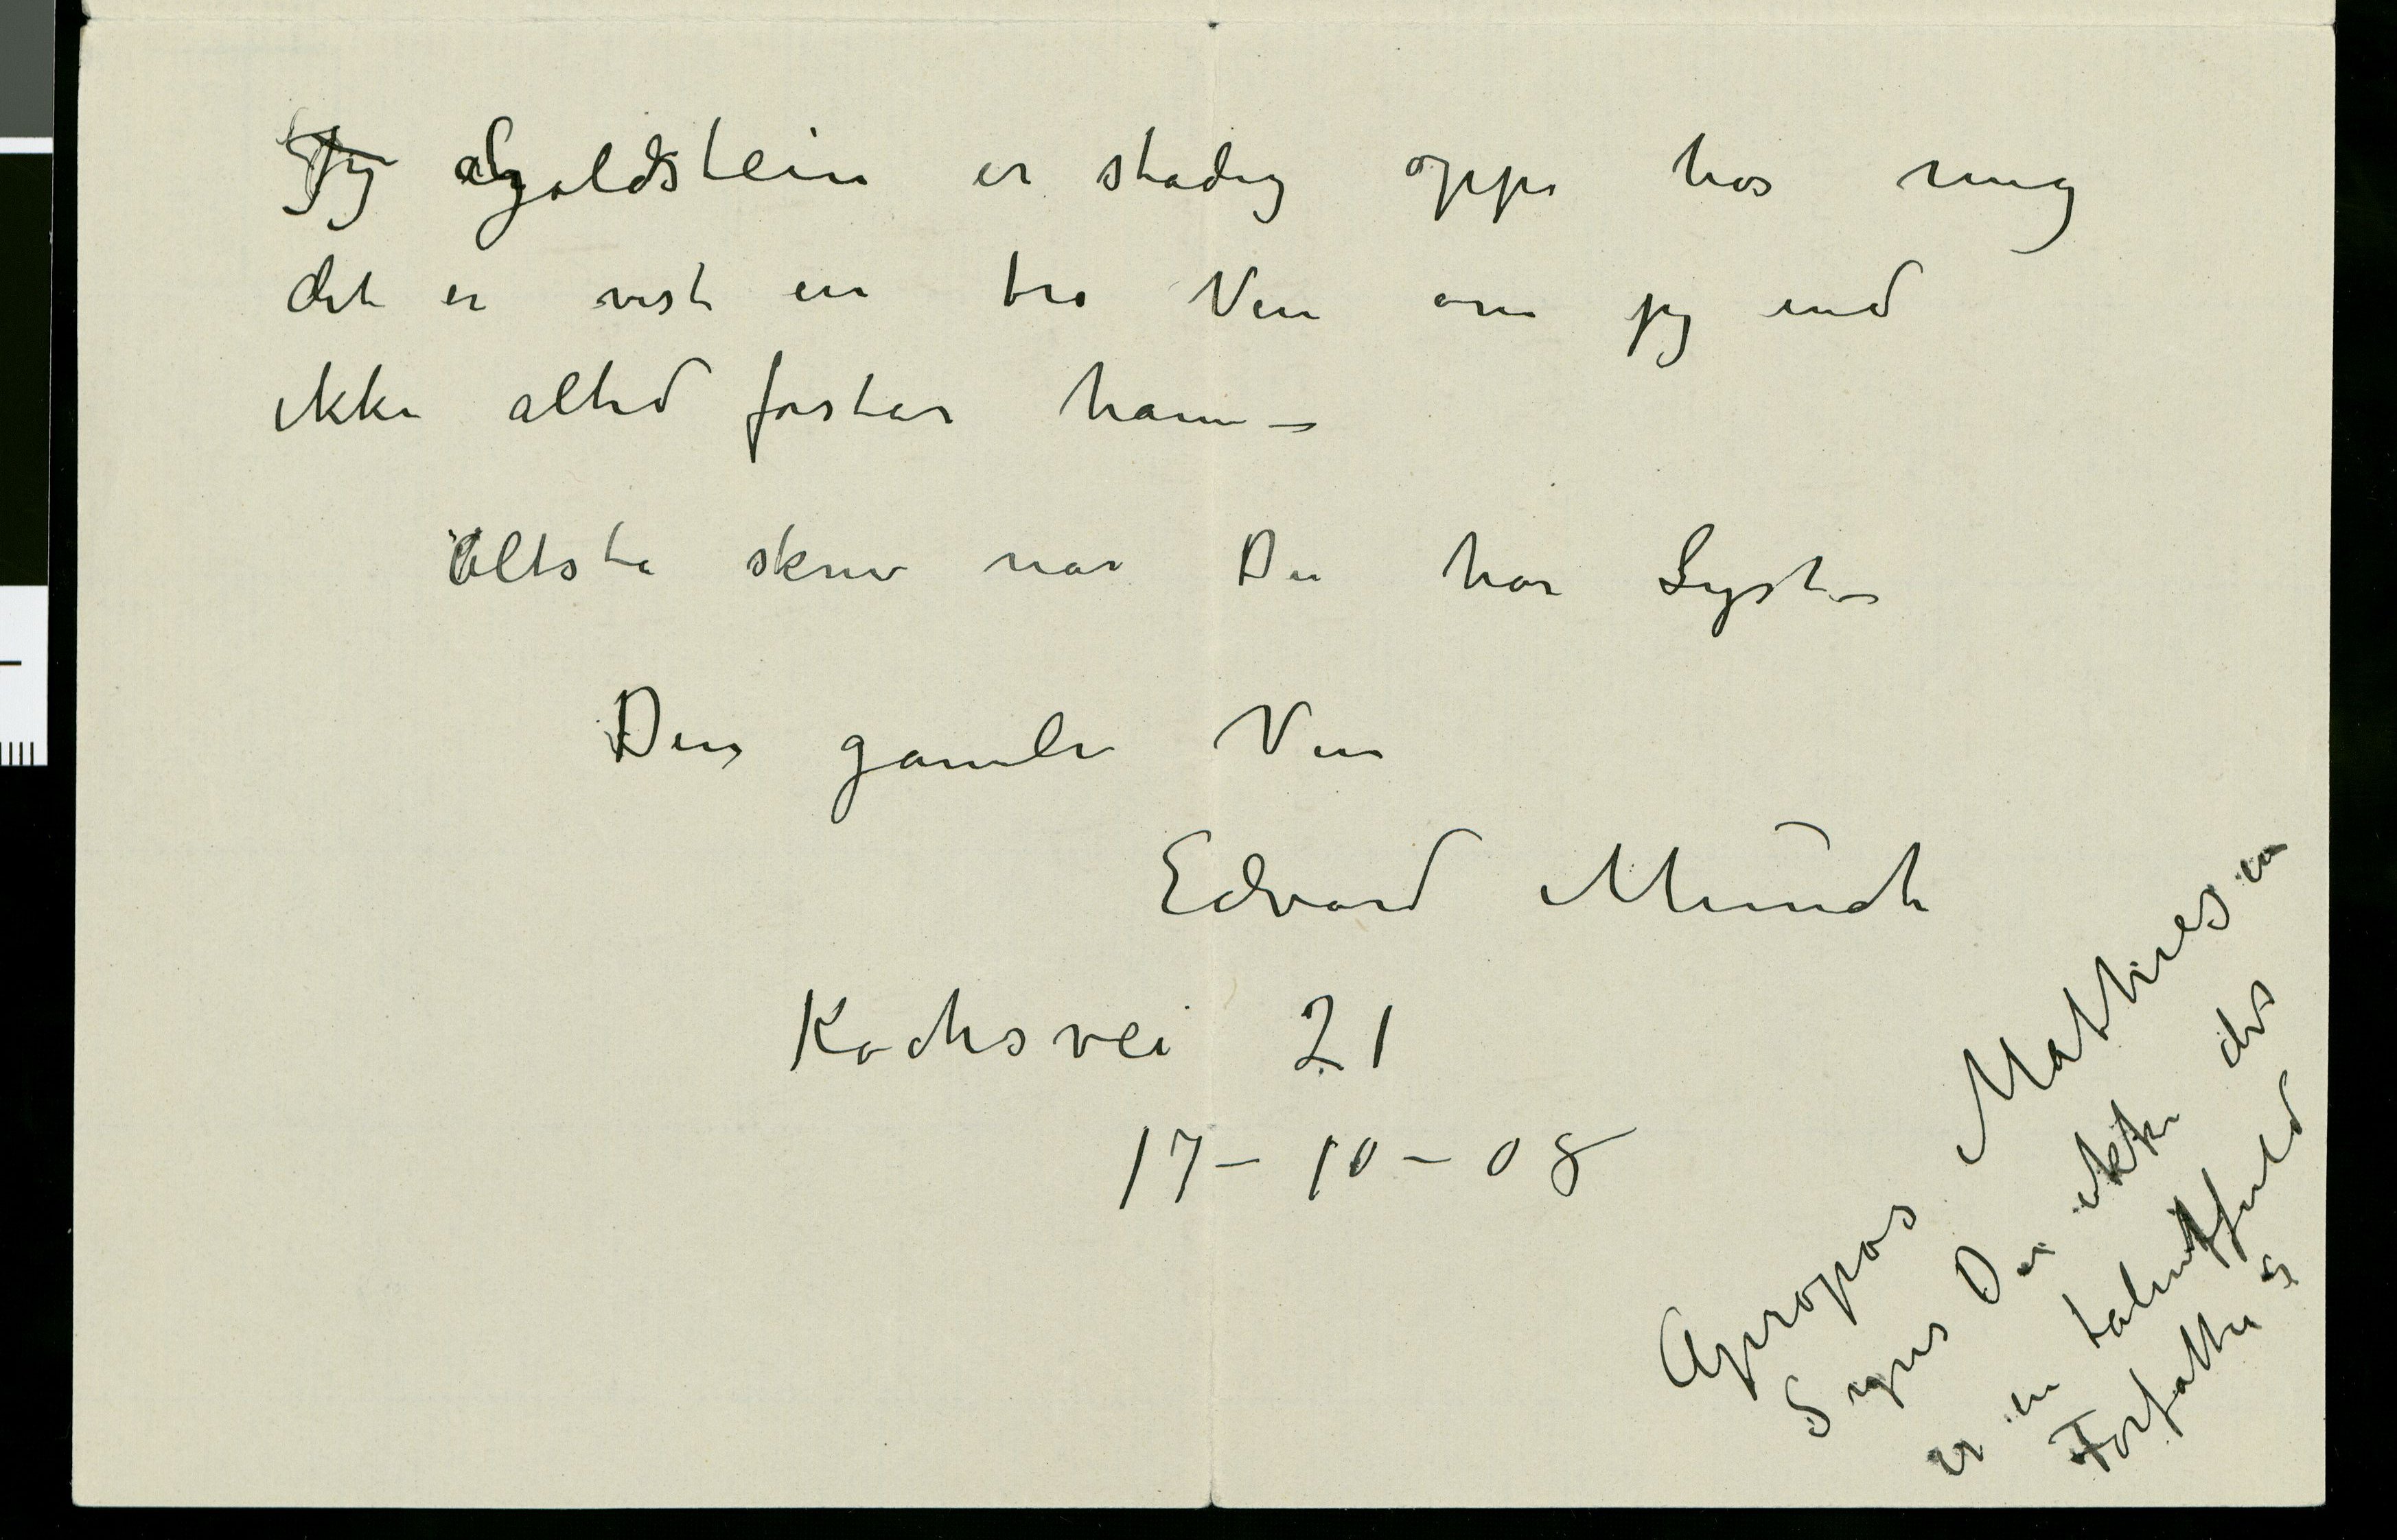 Jeg Goldstein er stadig oppe hos mig
det er vist en tro Ven om jeg end
ikke altid forstår ham –
Altså skriv når Du har Lyst –
Din gamle Ven
Edvard Munch
Kochsvei 21
17 – 10 – 08
Apropos Mathiesen
Synes Du ikke det
er en talentfuld
Forfatter